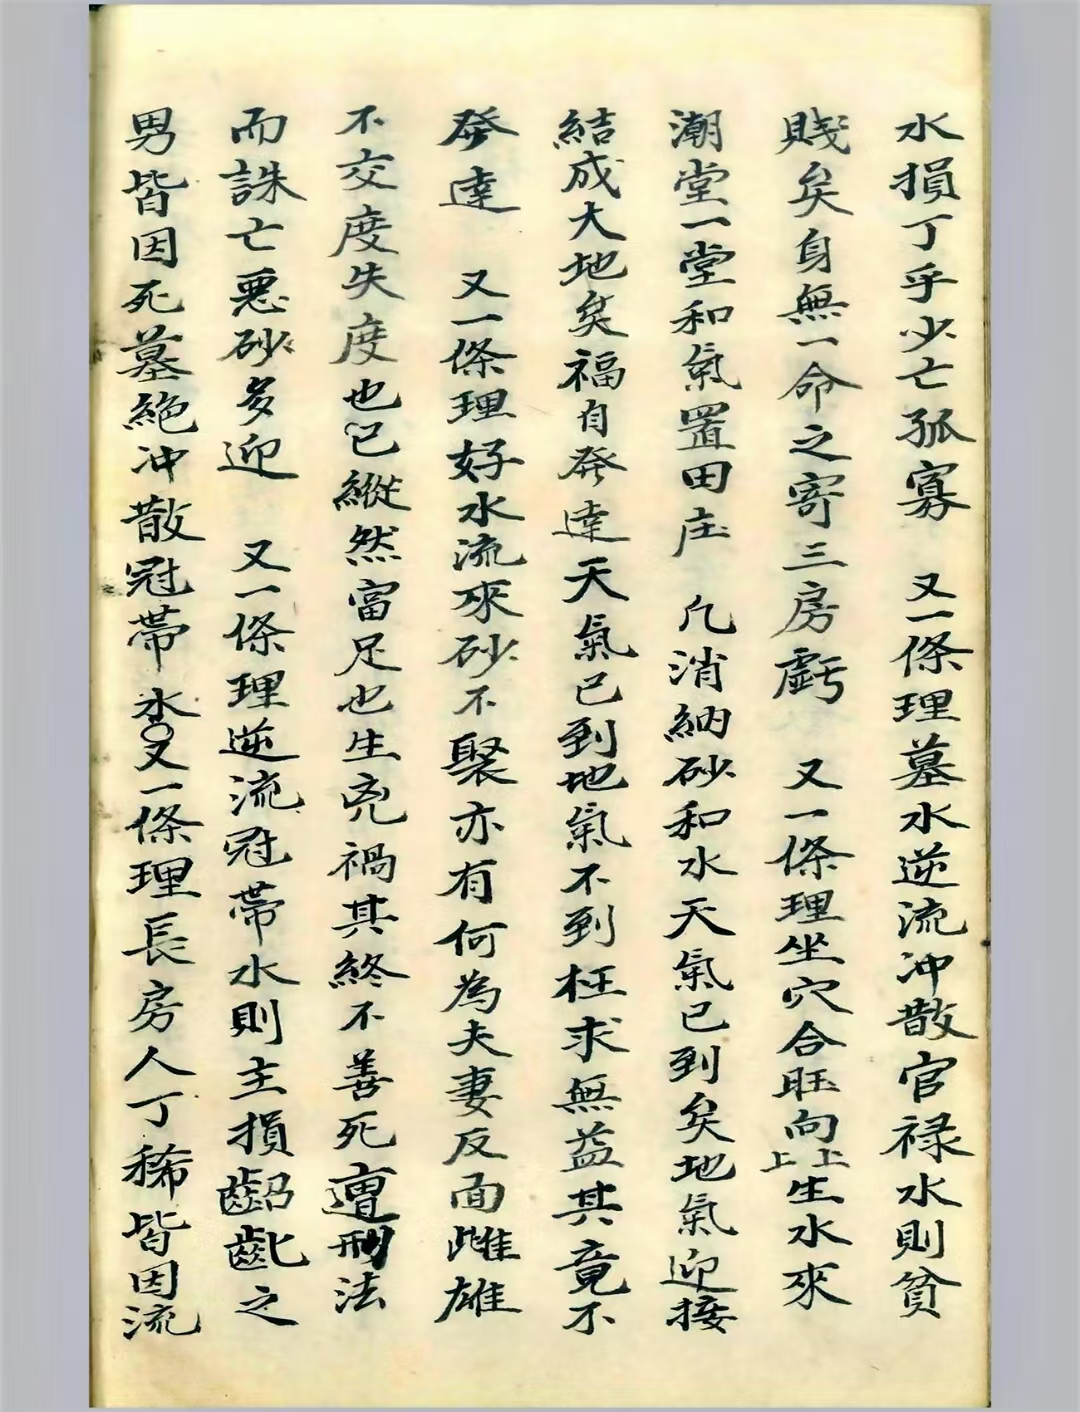 水損丁乎少亡孤寡　又一條理墓水逆流冲散官禄水則貧
賤矣身無一命之寄三房虧　又一條理坐穴合旺向上上生水來
潮堂一堂和氣置田庄　凡消納砂和水天氣已到矣地氣迎接
結成大地矣福自發達天氣已到地氣不到枉求無益其竟不
發達　又一條理好水流來砂不聚亦有何為夫妻反面雌雄
不交度失度也已縱然富足也生兇禍其終不善死遭刑法
而誅亡惡砂多迎　又一條理逆流冠帶水則主損齠齔之
男皆因死墓絕冲散冠帶水又一條理長房人丁稀皆因流